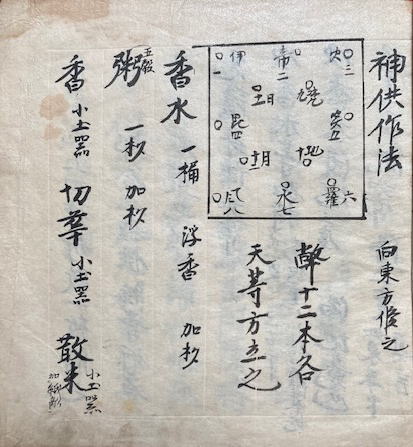 神供作法 向東方修之
火三
帝二
伊一
炎五
梵九
日十一
毘四
地十
月十二
羅六
水七
八
幣十二本各
天等方立之
香水 一桶 浮香 加杓
粥 五穀 一杓 加杓
香 小土器 切華 小土器 散米 小土器